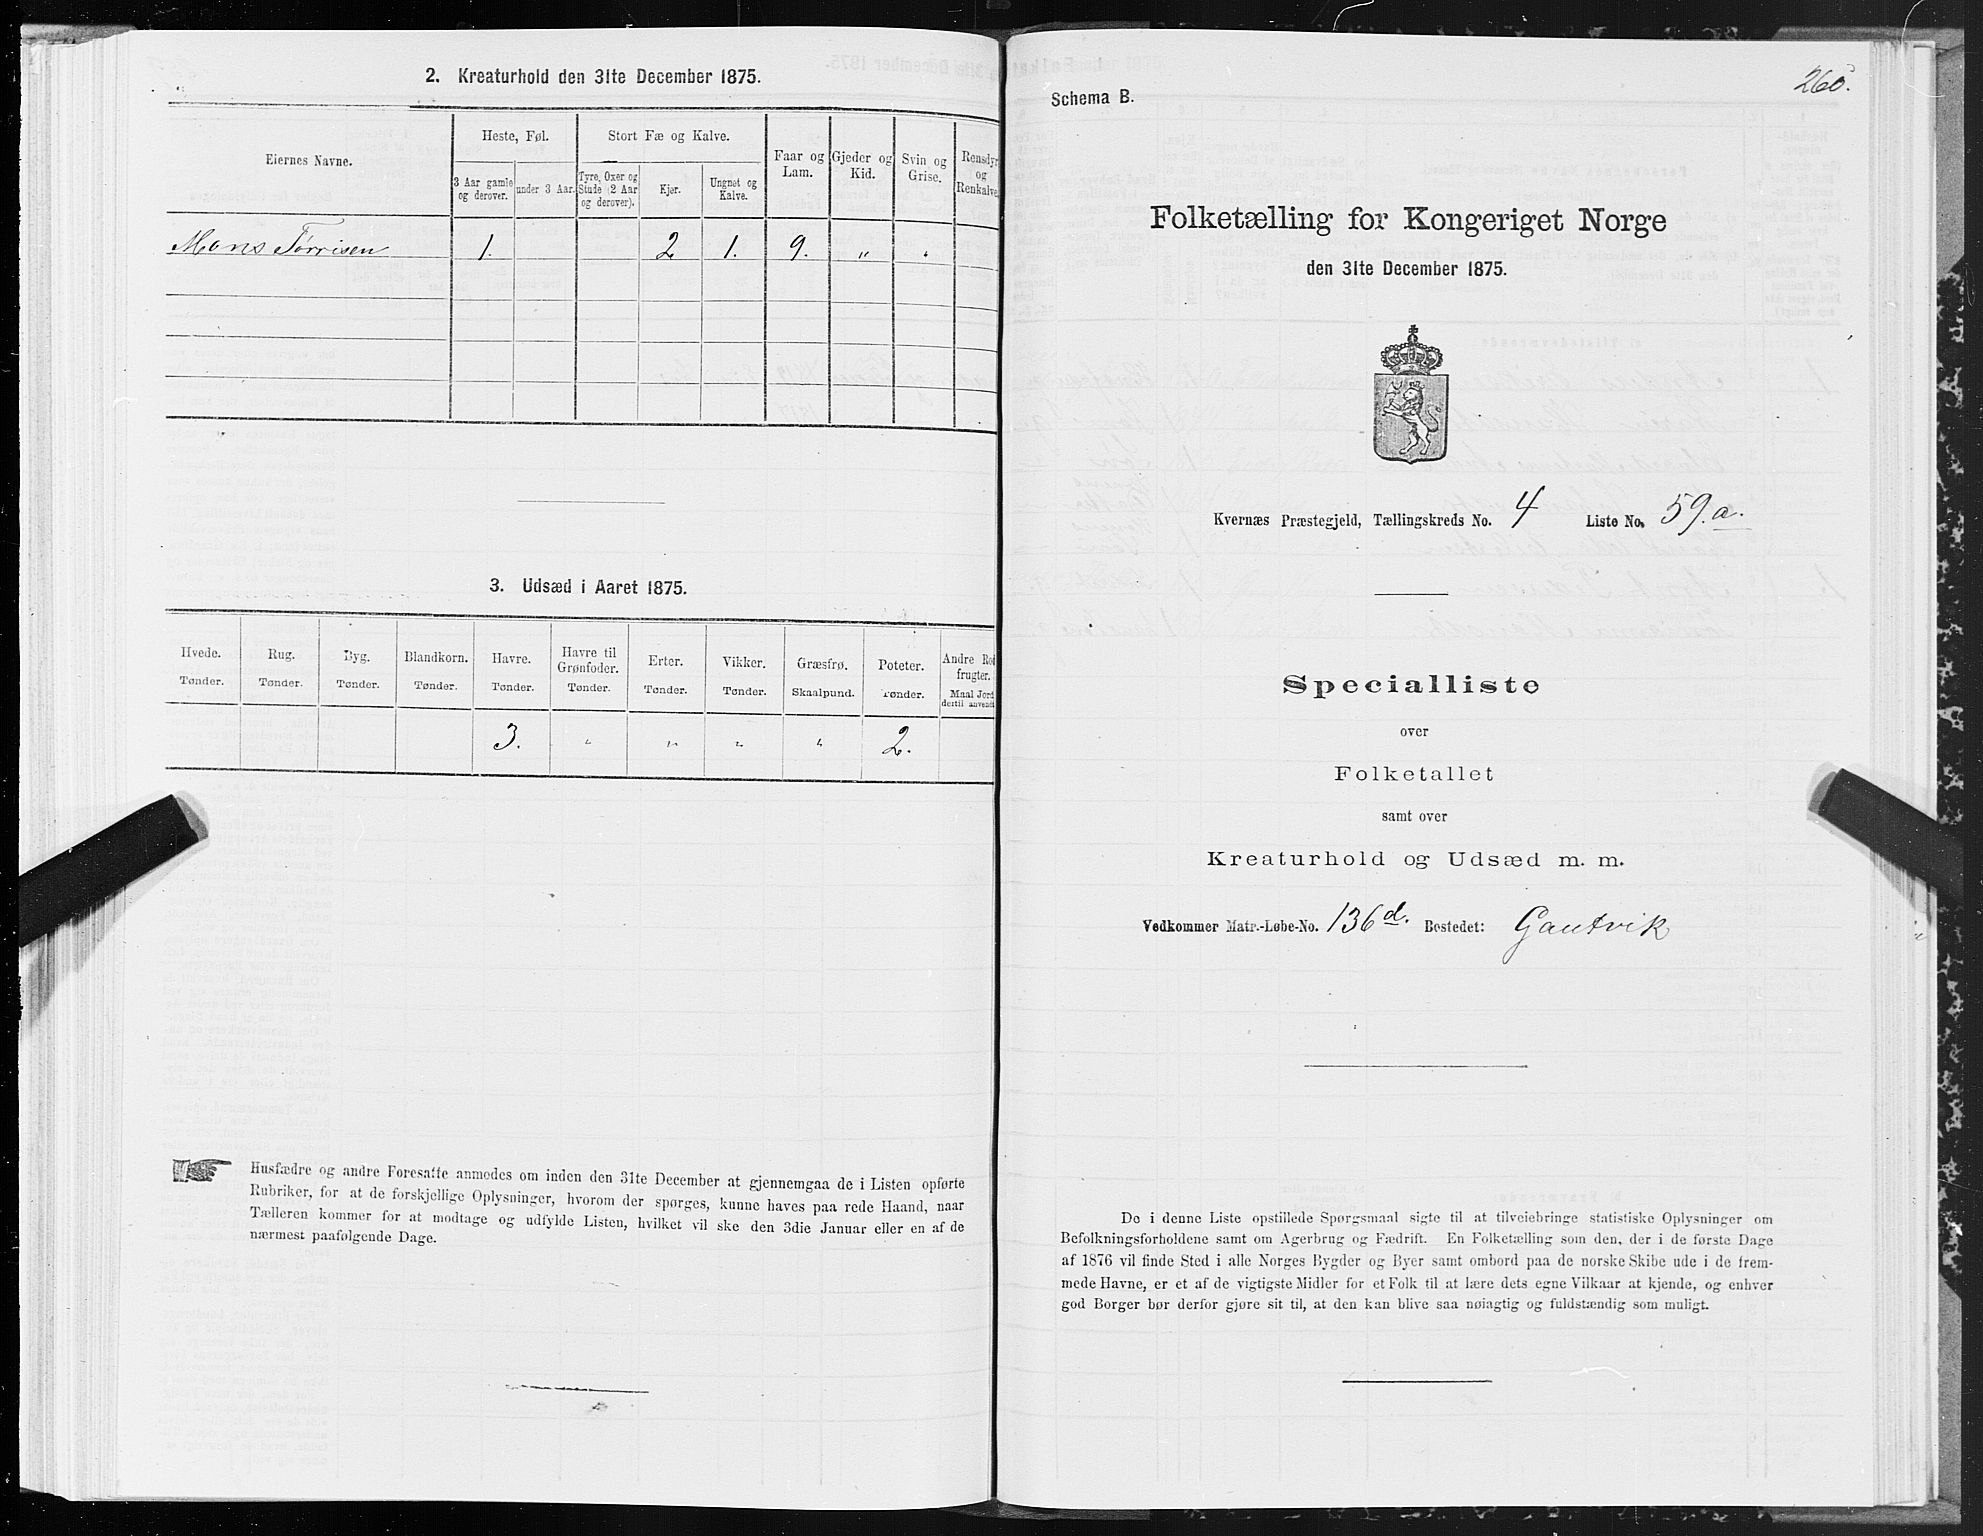 2. Kreaturhold den 31te December 1875.
Eiernes Navne.
Heste, Føl.
Stort Fæ og Kalve.
Faar og Lam.
Gjeder og Kid.
Svin og Grise.
Rensdyr og Renkalve.
3 Aar gamle og derover.
under 3 Aar.
Tyre, Oxer og Stude (2 Aar og derover).
Kjør.
Ungnøt og Kalve.
Mons Tørrisen 1. 2 1. 9. " "
3. Udsæd i Aaret 1875.
Hvede. Rug. Byg. Blandkorn. Havre. Havre til Grønfoder. Erter. Vikker. Græsfrø. Poteter. Andre Rodfrugter.
Tønder. Tønder. Tønder. Tønder. Tønder. Tønder. Tønder. Tønder. Skaalpund. Tønder. Maal Jord dertil anvendt
3. " " " " 2.
Husfædre og andre Foresatte anmodes om inden den 31te December at gjennemgaa de i Listen opførte
Rubriker, for at de forskjellige Oplysninger, hvorom der spørges, kunne haves paa rede Haand, naar
Tælleren kommer for at modtage og udfylde Listen, hvilket vil ske den 3die Januar eller en af de
nærmest paafølgende Dage.
260.
Schema B.
Folketælling for Kongeriget Norge
den 31te December 1875.
Kvernæs Præstegjeld, Tællingskreds No. 4 Liste No. 59.a.
Specialliste
over
Folketallet
samt over
Kreaturhold og Udsæd m. m.
Vedkommer Matr.-Løbe-No. 136d. Bostedet: Gautvik
De i denne Liste opstillede Spørgsmaal sigte til at tilveiebringe statistiske Oplysninger om
Befolkningsforholdene samt om Agerbrug og Fædrift. En Folketælling som den, der i de første Dage
af 1876 vil finde Sted i alle Norges Bygder og Byer samt ombord paa de norske Skibe ude i de frem-
mede Havne, er et af de vigtigste Midler for et Folk til at lære dets egne Vilkaar at kjende, og enhver
god Borger bør derfor gjøre sit til, at den kan blive saa nøiagtig og fuldstændig som muligt.